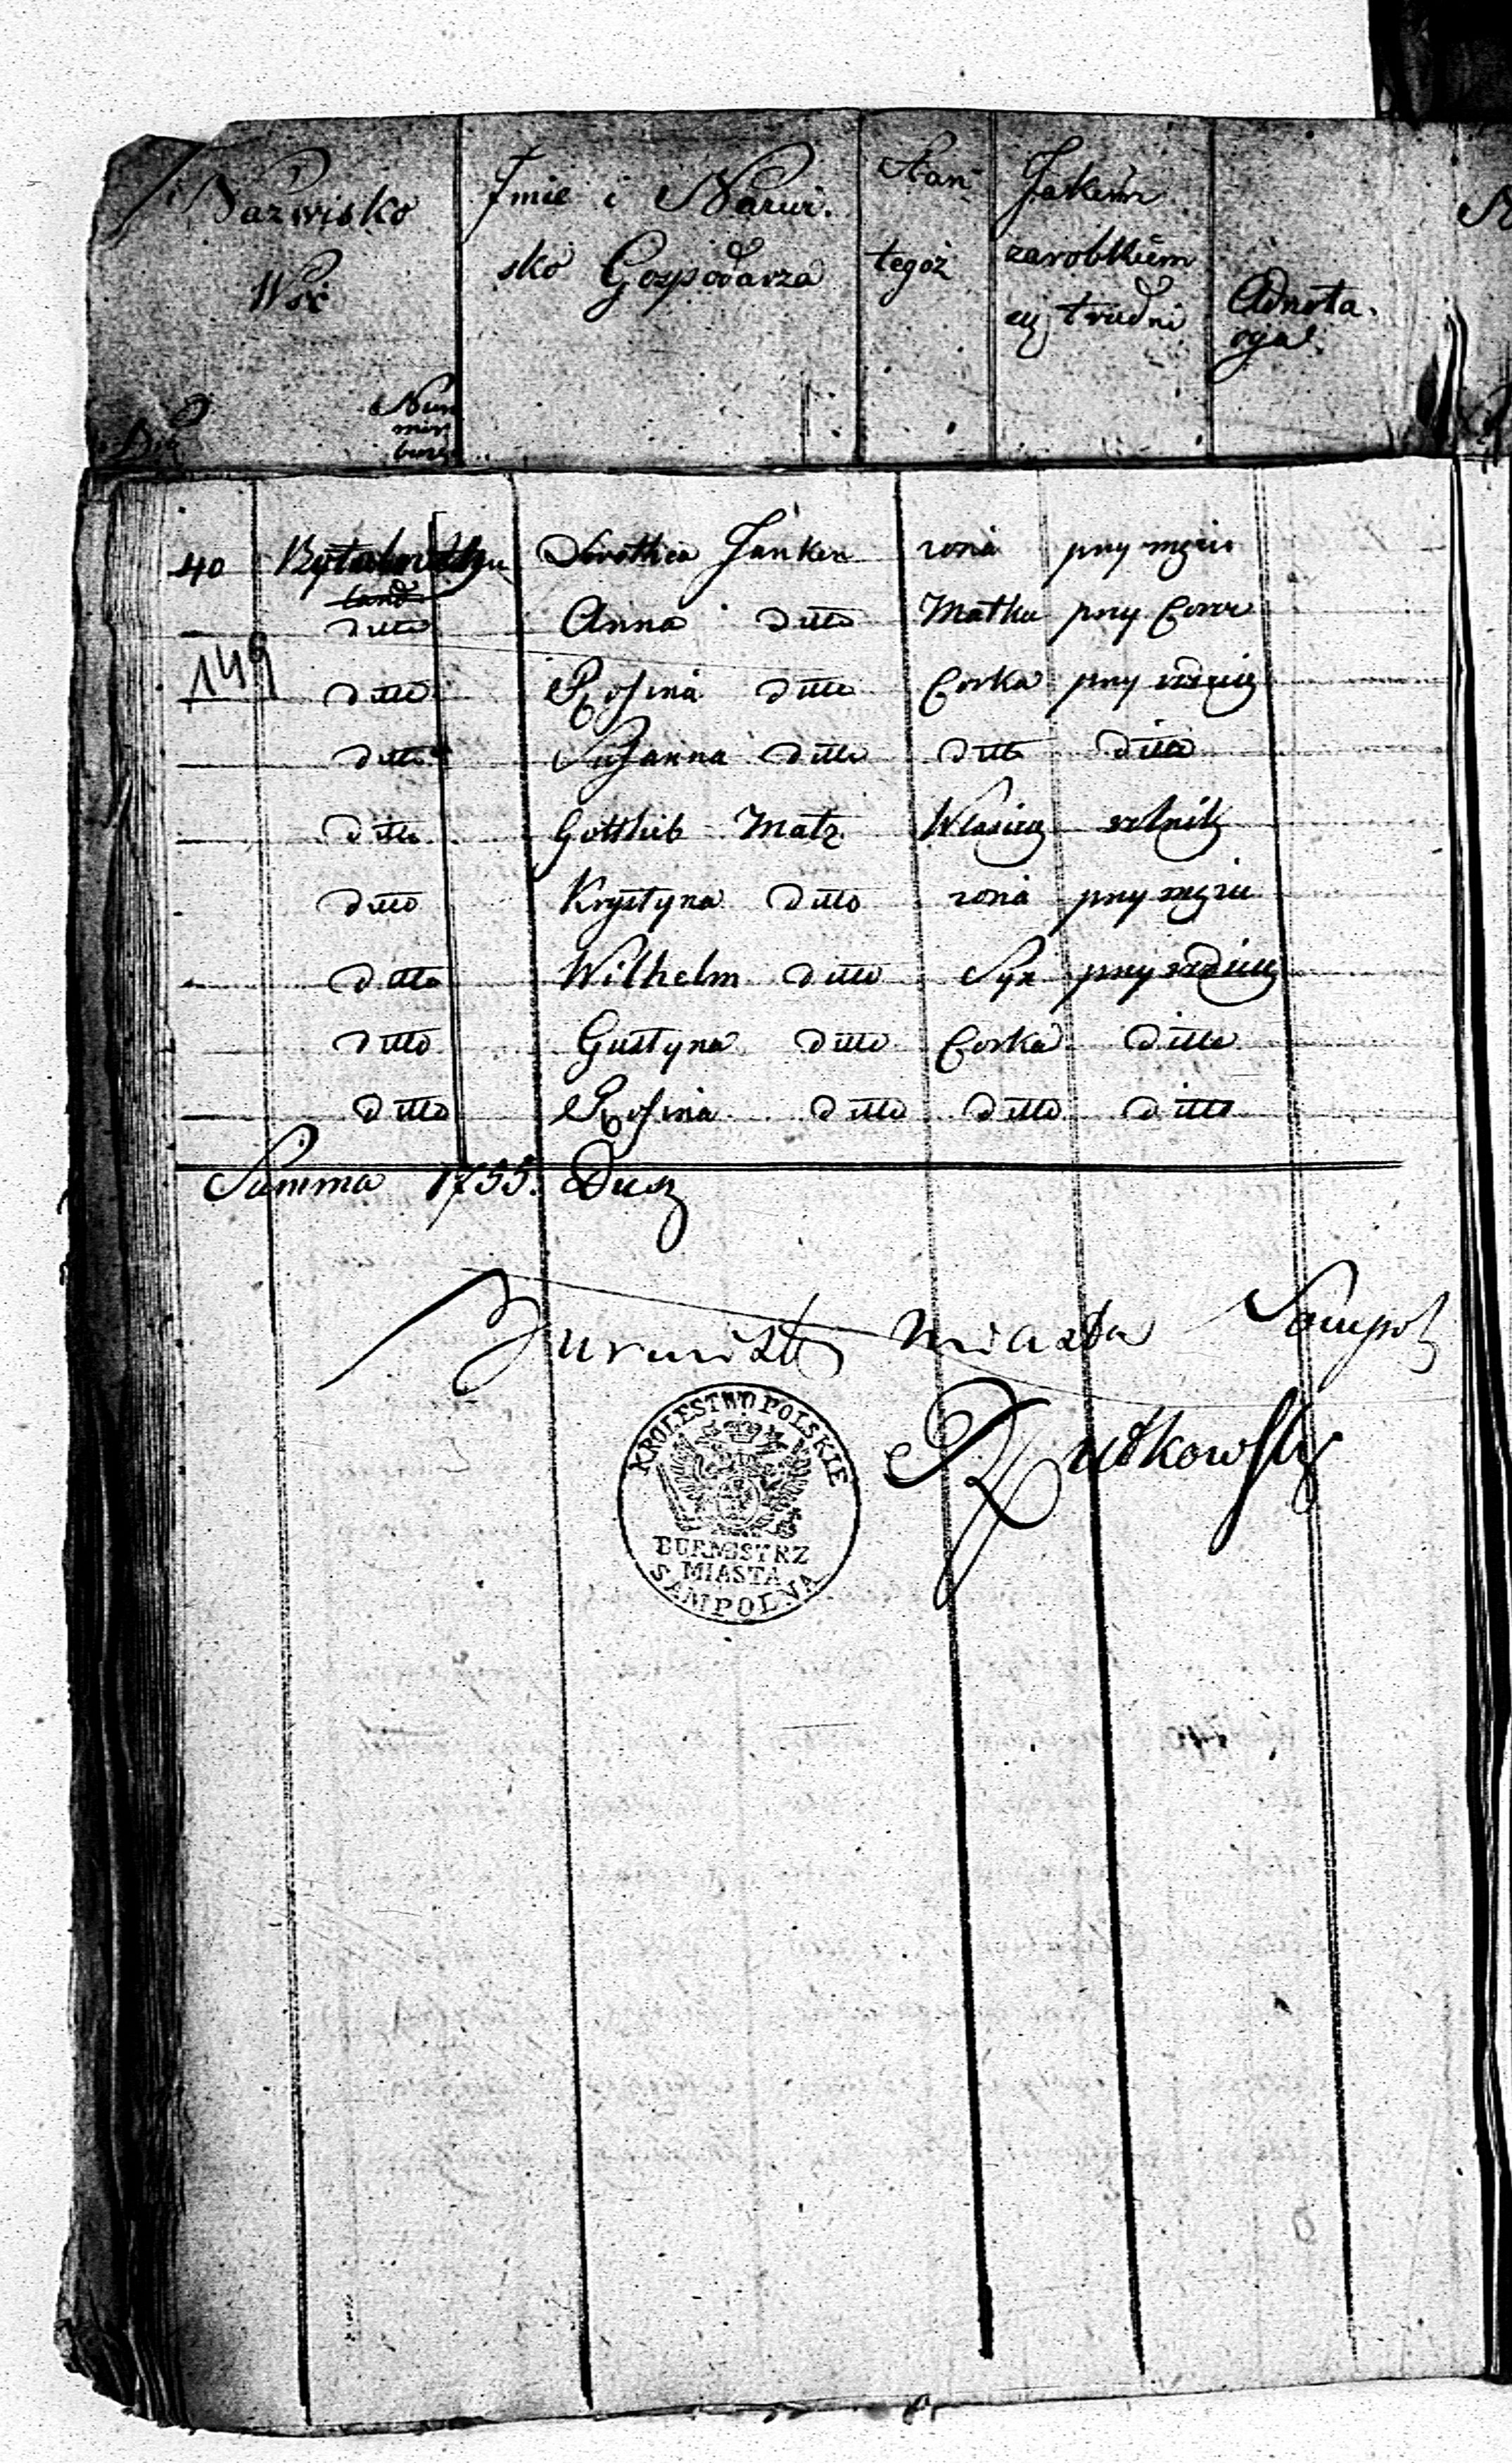 Nazwisko
Wsi
Imie i Nazwi-
sko Gospodarza
Stan
tegoż
Jakiem
zarobkiem
się trudni
Adnota-
cyja
Num
40 Dorothea Janken żona przy mężu
ditto Anna ditto Matka przy Corce
149
ditto Rosina ditto Corka przy rodzicach
ditto Susanna ditto ditto ditto
ditto Gottlieb Matz rolnik
ditto Krystyna ditto żona przy mężu
ditto Wilhelm ditto Syn przy rodzicach
ditto Gustyna ditto Corka ditto
ditto Rosina ditto ditto ditto
Summa 1755. Dusz
Burmistrz Miasta Sempol
Rutkowski
KROLESTWO POLSKIE
BURMISTRZ
MIASTA
SAMPOLNA